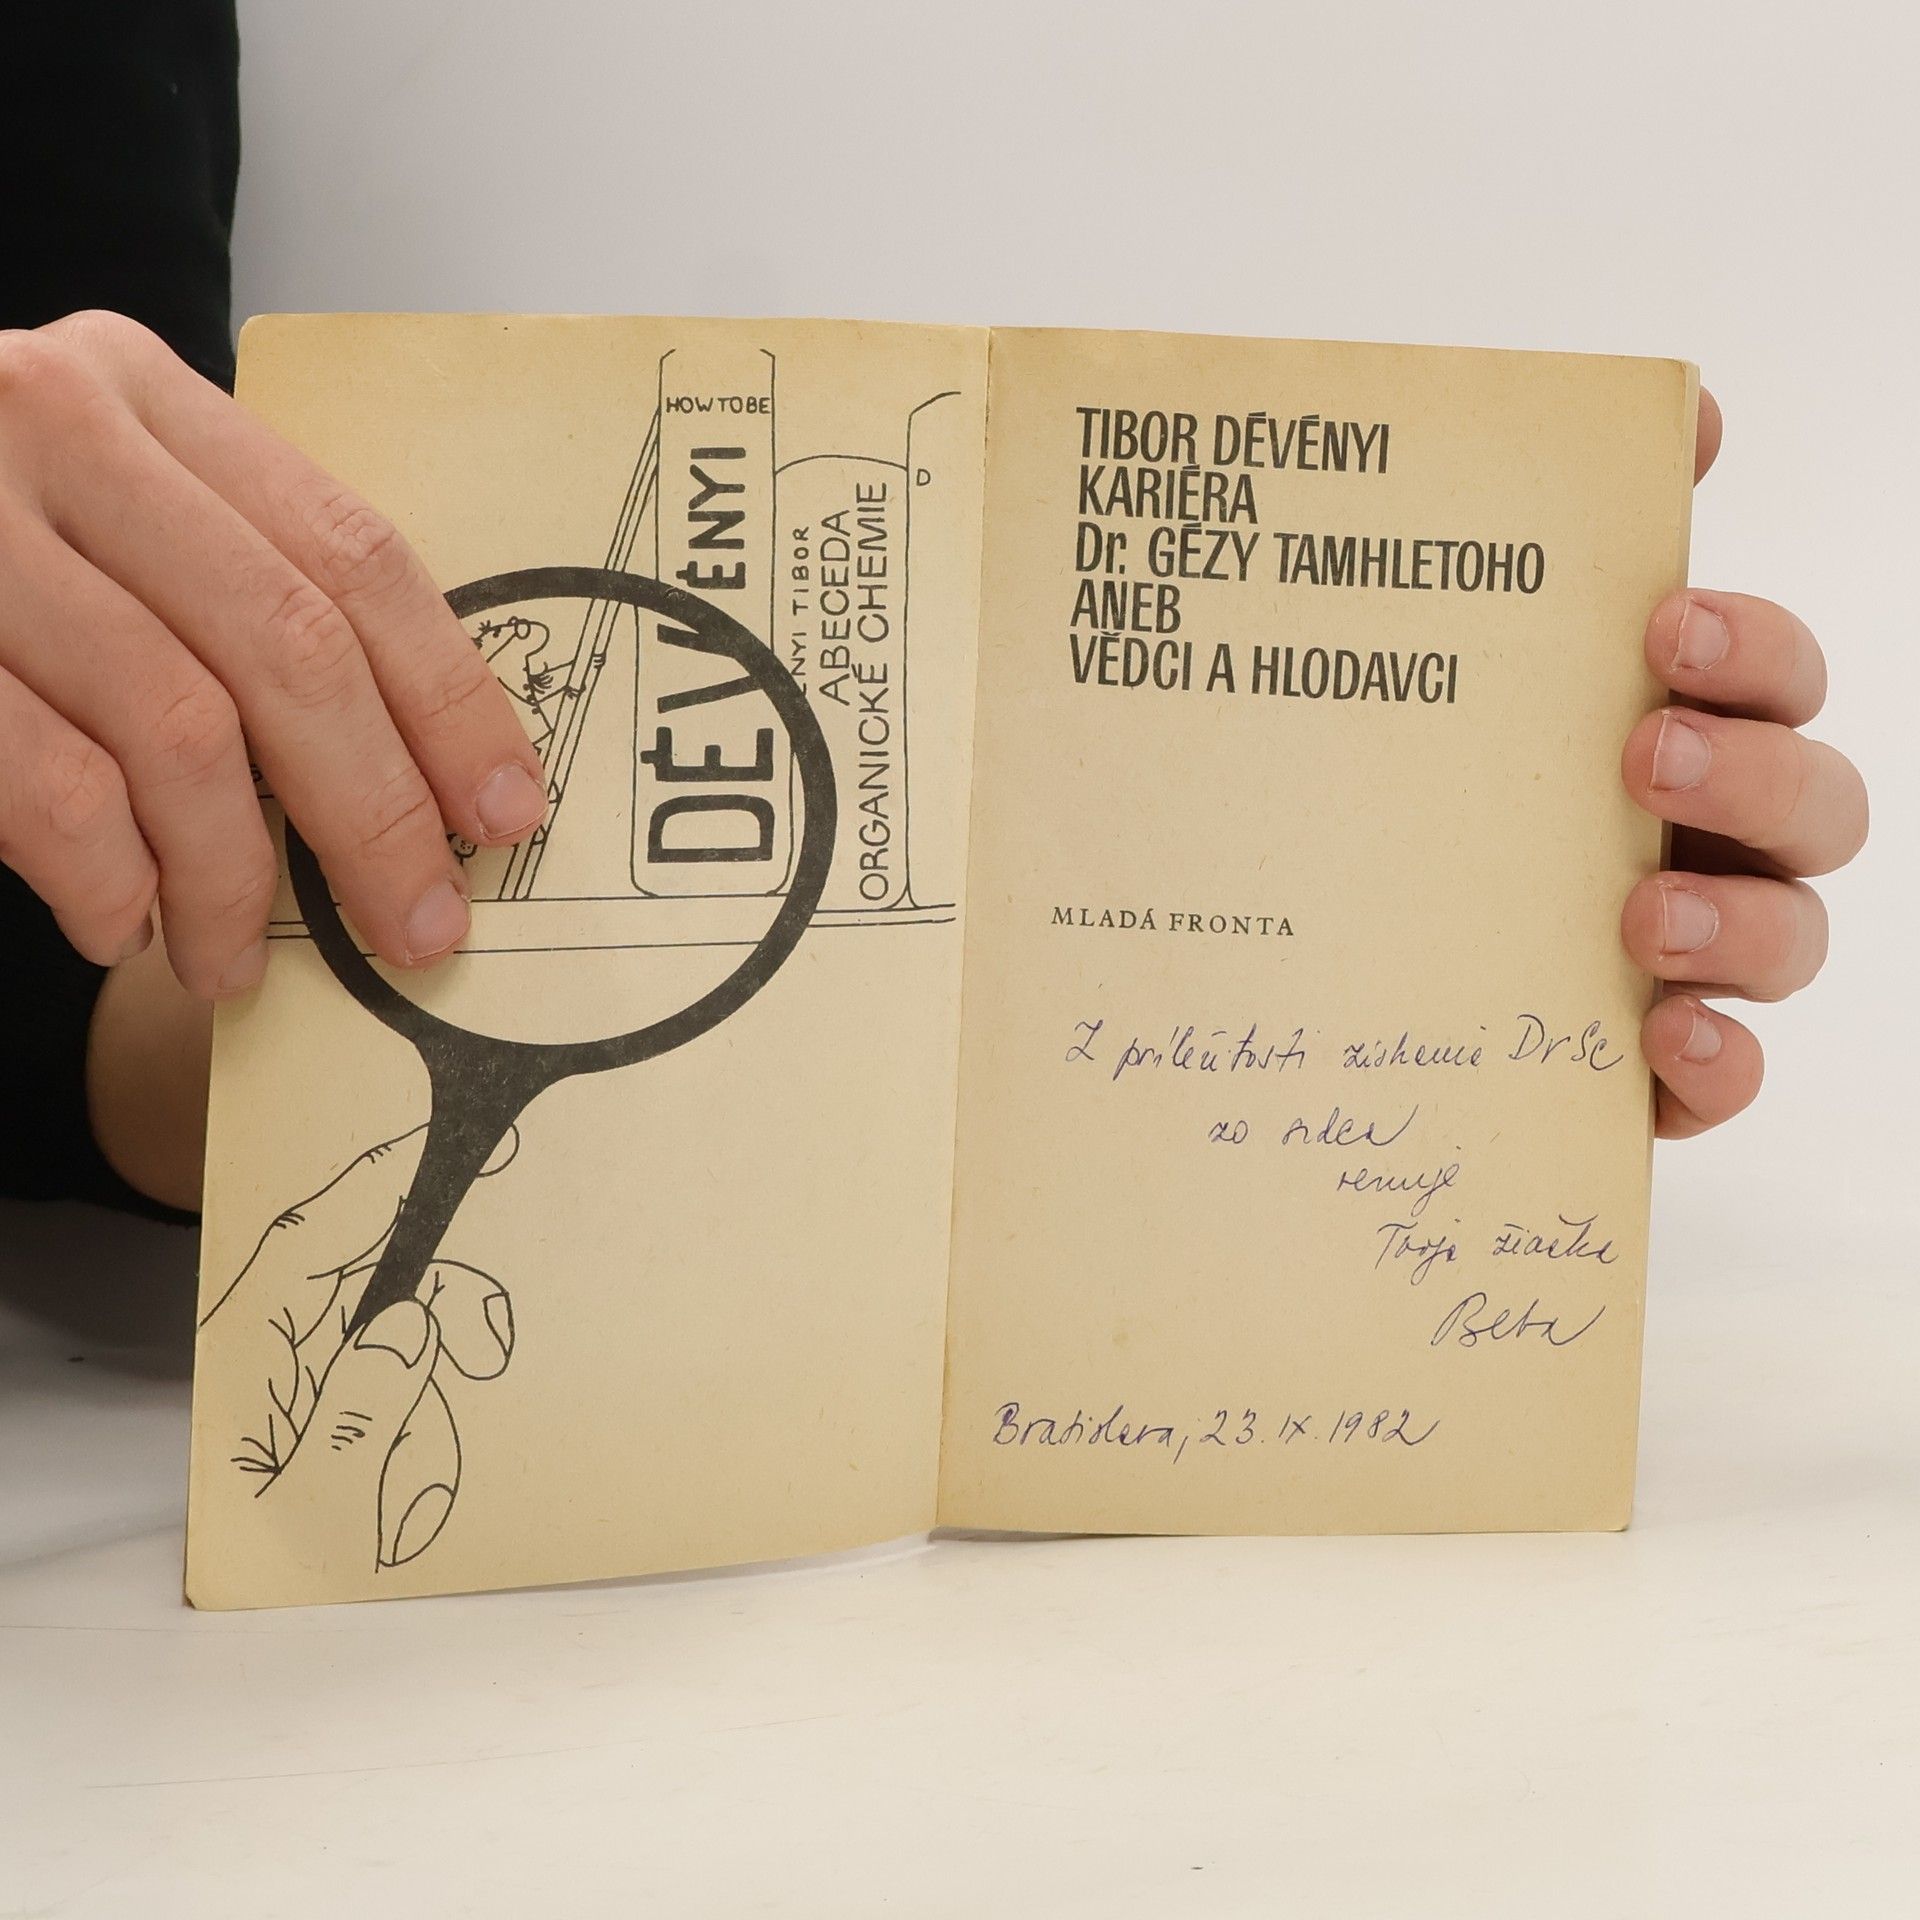 HOW TO BE
DÉVÉNYI
ÉNYI TIBOR
ABECEDA
ORGANICKÉ CHEMIE
D
TIBOR DÉVÉNYI
KARIÉRA
Dr. GÉZY TAMHLETOHO
ANEB
VĚDCI A HLODAVCI
MLADÁ FRONTA
Z príležitosti získania DrSc
zo srdca
venuje
Tvoja žiačka
Beta
Bratislava, 23. IX. 1982